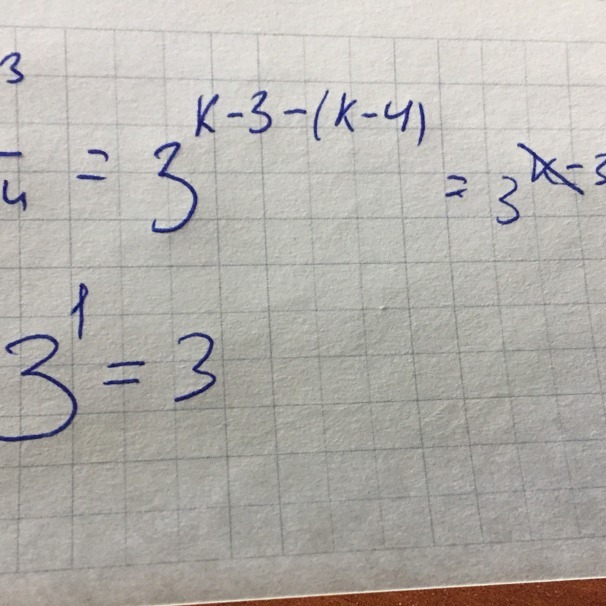 3
— = 3^{k-3-(k-4)} = 3^{k-3
4
3^1 = 3